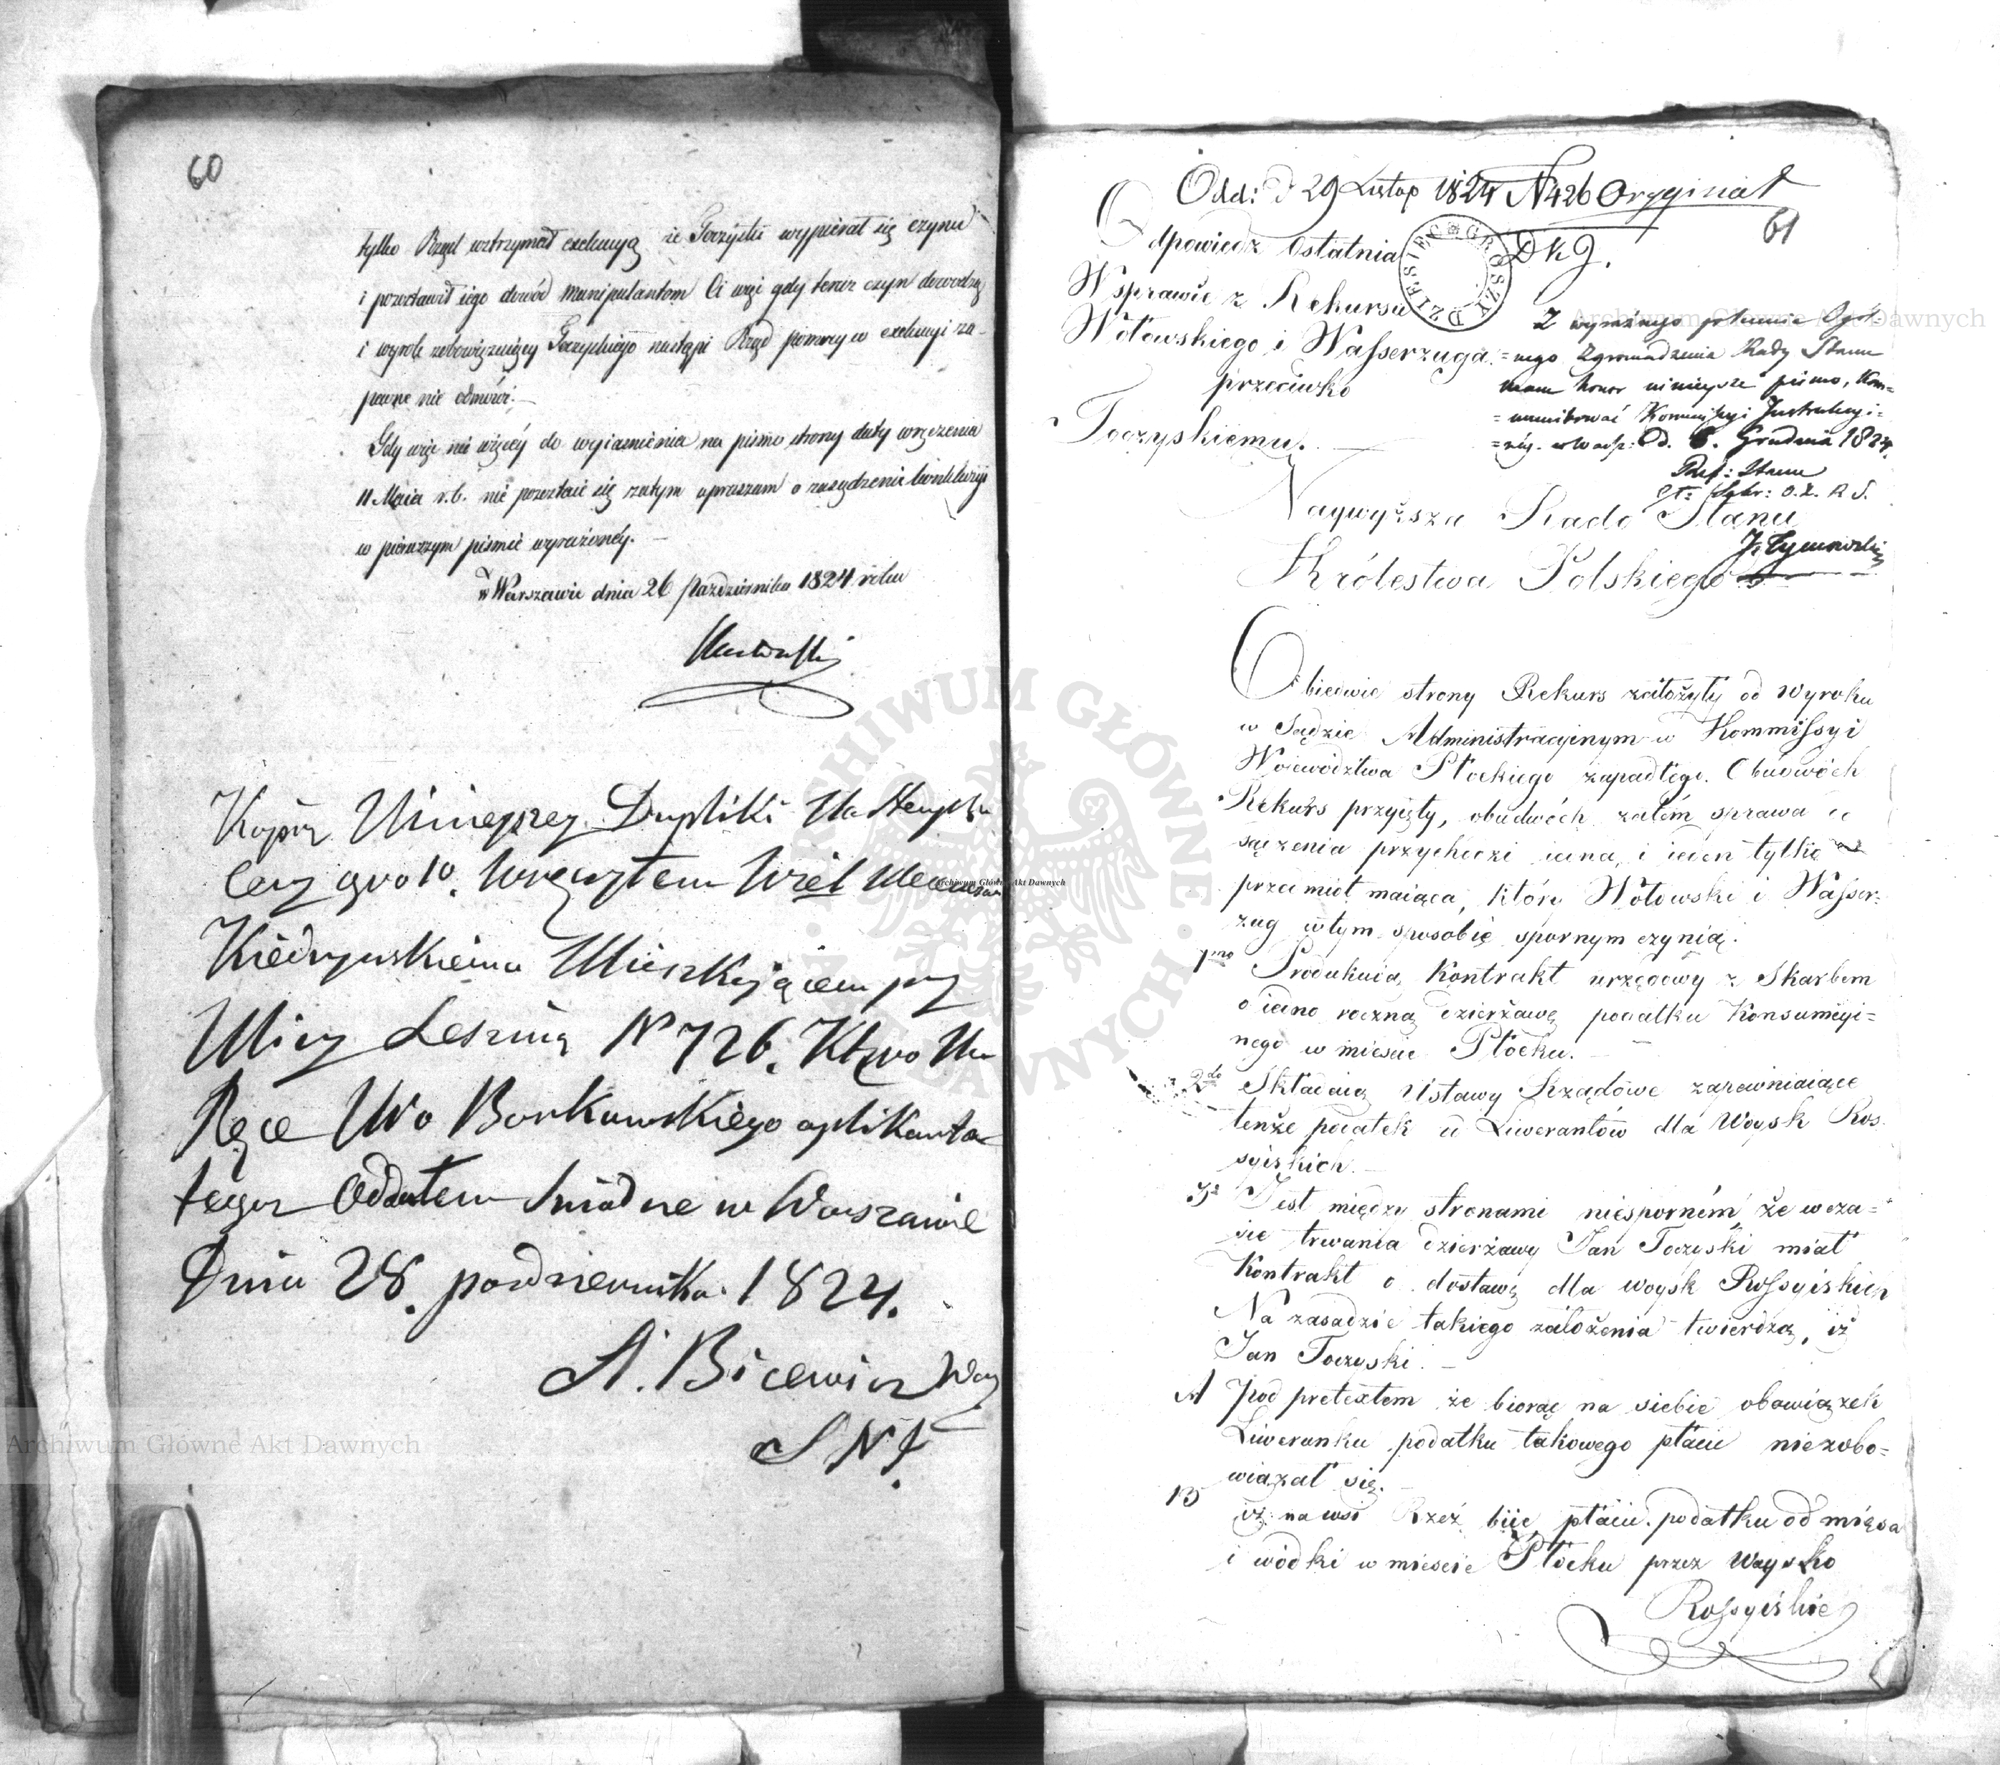 60
tylko Rząd wstrzymał exekucyą że Toczyski wypierał się czynu
i pozostawił iego dowód manipulantom Ci więc gdy teraz czyn dowodzą
i wyrok zobowiązuiący Toczyskiego nastąpi Rząd pomocy w exekucyi za-
pewne nie odmówi.—
Gdy więc nic więcéy do wyiaśnienia na pismo strony daty wręczenia
11 Maia r.b. nie pozostaie się zatym upraszam o zasądzenie konkluzyi
w pierwszym piśmie wyrażonéy.—
w Warszawie dnia 26 Października 1824 roku
Kopią Ninieyszey Dupliki Na Stemplu
Ceny gro 10. Wręczyłem Wiel Mecenasowi
Kiedrzyńskiemu Mieszkaiącemu przy
Ulicy Leszno N 726. Którą Na
Ręce Uro Borkowskiego aplikanta
tegoż Oddałem Swiadczę w Warszawie
Dnia 28. pazdziernika 1824.
A. Bicewicz Woź
S N J
Odd: D 29 Listop 1824 N 426 Oryginał
61
Odpowiedz Ostatnia
DKg.
DZIESIĘC GROSZY
W sprawie z Rekursu
Wołowskiego i Wasserzuga
przeciwko
Toczyskiemu.
Z wyraźnego polecenia Ogól-
=nego Zgromadzenia Rady Stanu
mam honor ninieysze pismo, Kom=
=munikować Kommissyi Instrukcyi=
Od. 6. Grudnia 1824.
Ref: Stanu
J. Tymowski
Naywyższa Rado Stanu
Królestwa Polskiego
Obiedwie strony Rekurs założyły od Wyroku
w Sądzie Administracyinym w Kommissyi
Woiewództwa Płockiego zapadłego. Obudwóch
Rekurs przyięty, obudwóch zatém sprawa do
sądzenia przychodzi iedna, i ieden tylko
przedmiot maiąca, który Wołowski i Wasser=
zug w tym sposobie spornym czynią.
1mo Produkuią Kontrakt urzędowy z Skarbem
o iedno roczną dzierżawę podatku Konsumcyi=
nego w mieście Płocku.—
2do Składaią Ustawy Rządowe zapewniaiące
tenże podatek od Liwerantów dla Woysk Ros
syiskich.—
3o Jest między stronami niesporném że w cza=
sie trwania dzierżawy Jan Toczyski miał
Kontrakt o dostawę dla woysk Rossyiskich
Na zasadzie takiego założenia twierdzą, iż
Jan Toczyski.—
A Pod pretextem że biorąc na siebie obowiązek
Liwerunku podatku takowego płacić niezobo=
wiązał się.
B iż na wsi Rzeź biie, płacić podatku od mięsa
i wódki w mieście Płocku przez Woysko
Rossyiskie